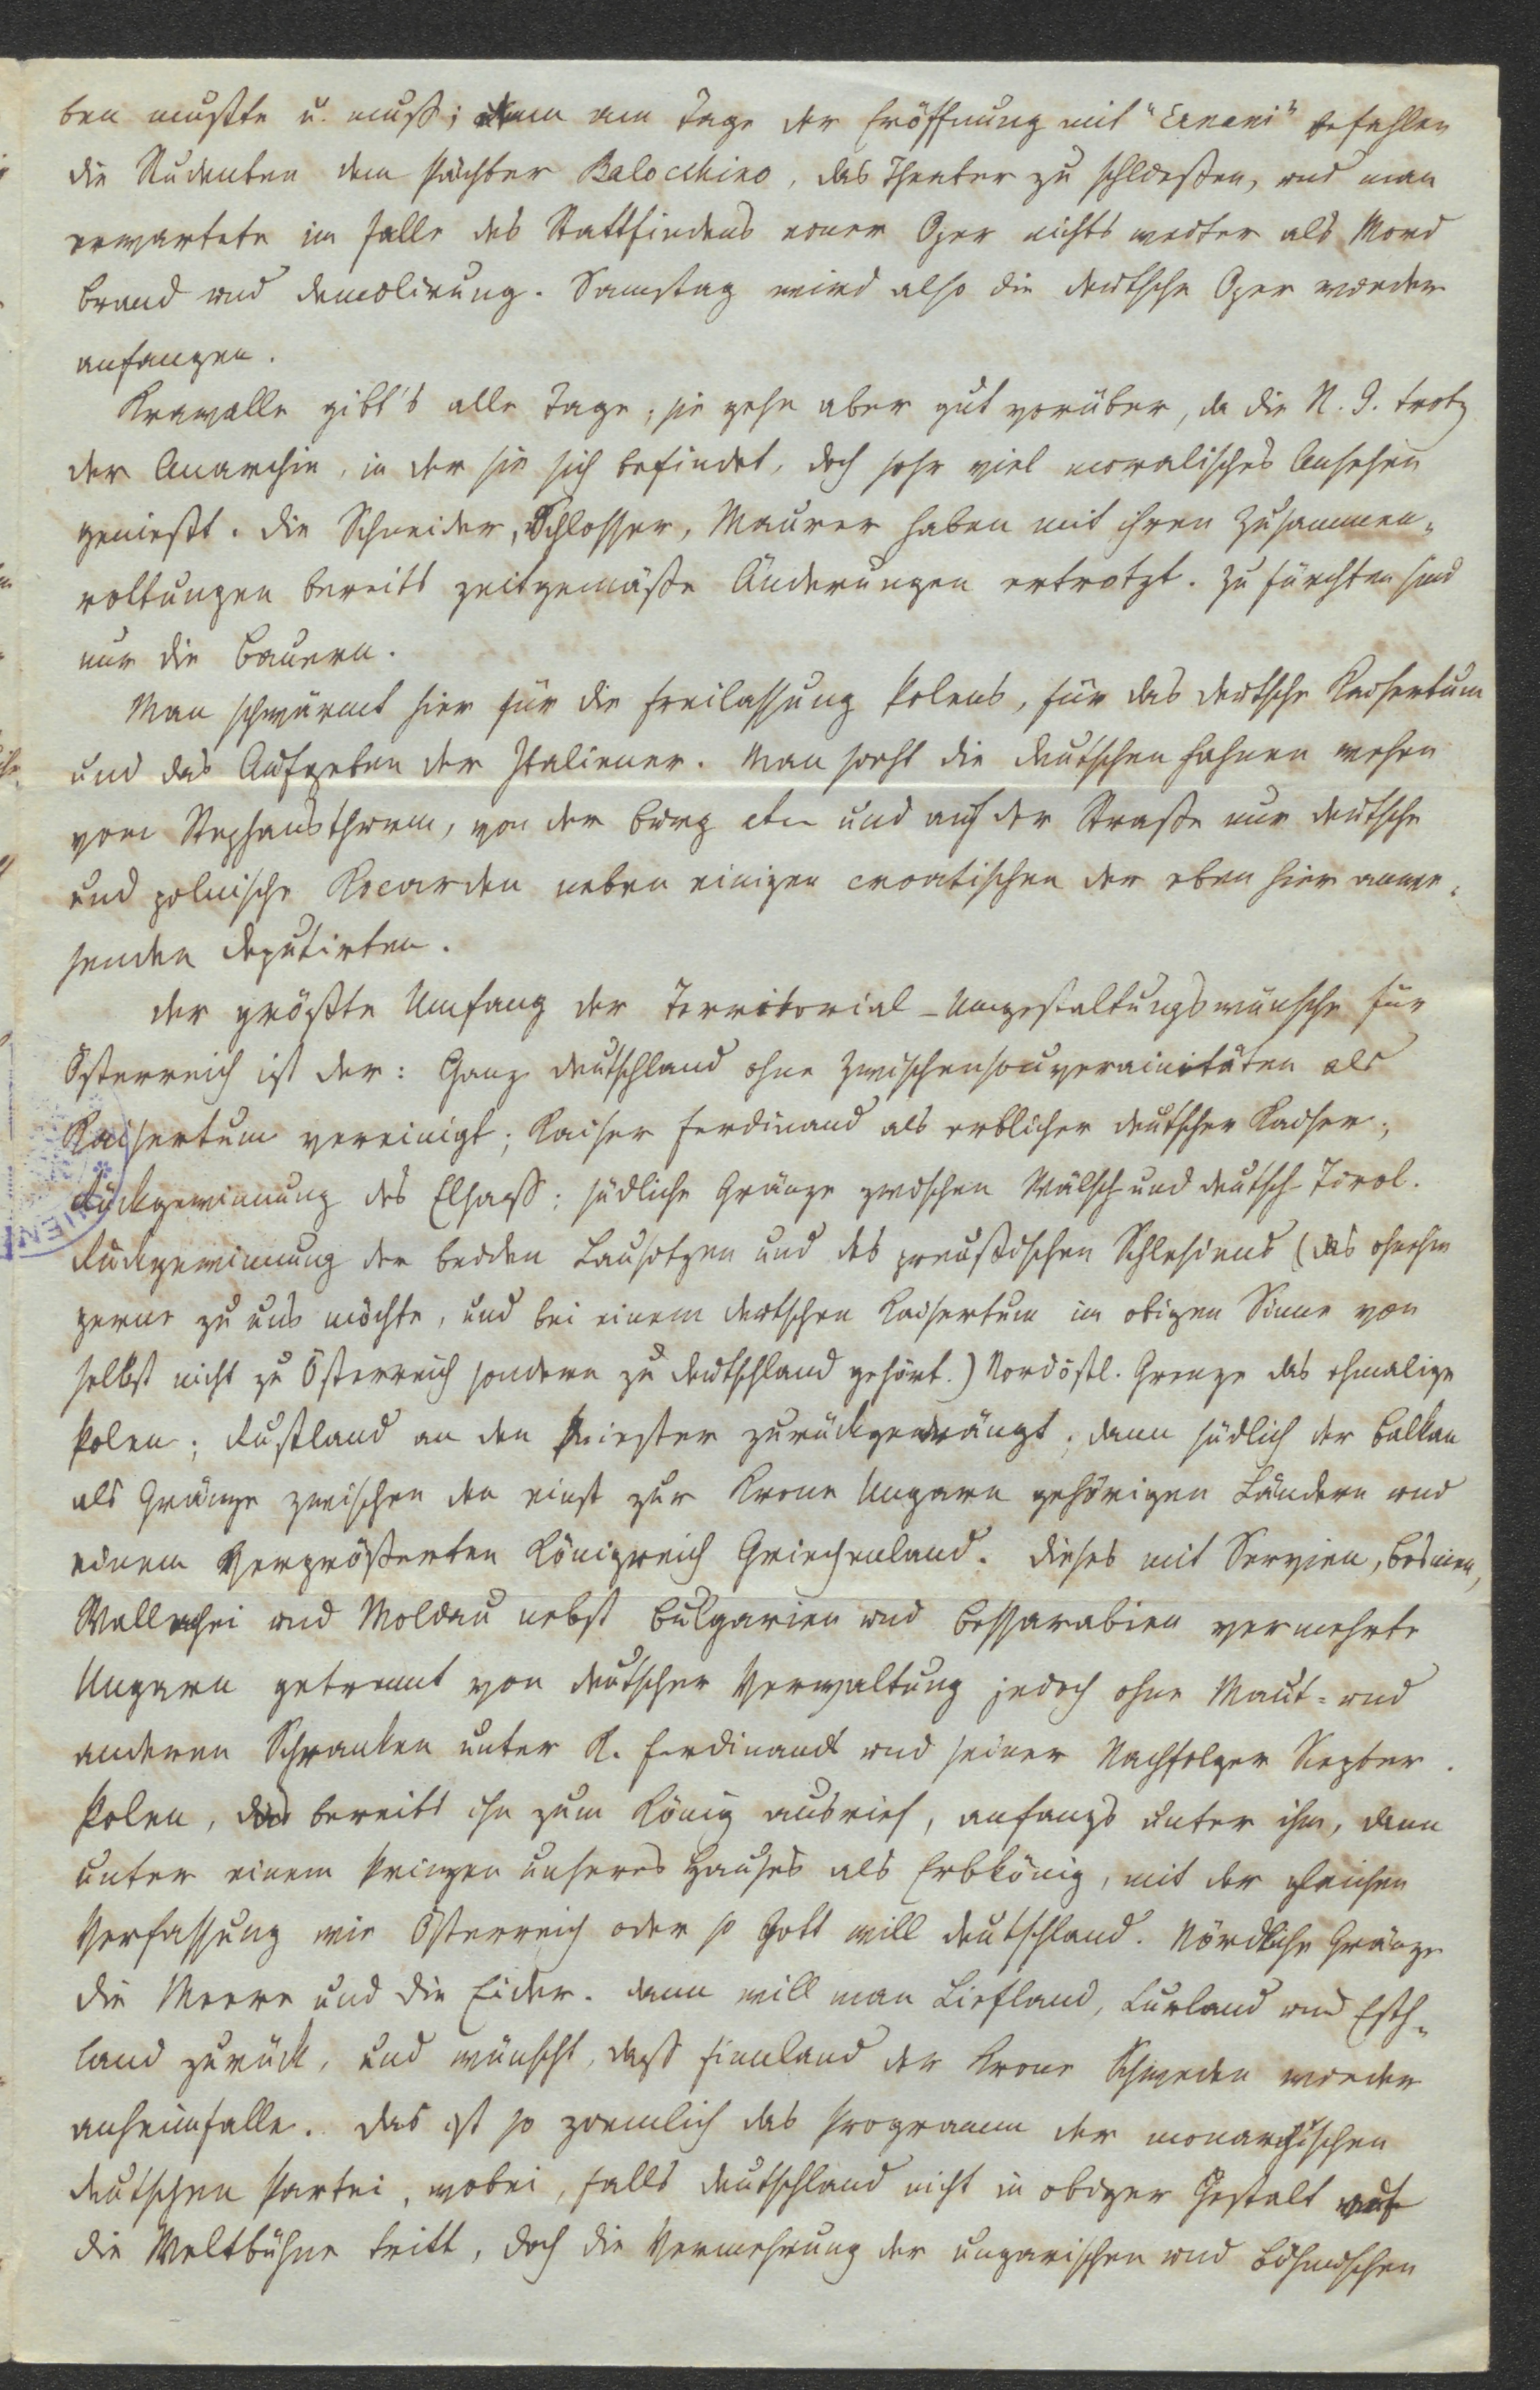 ben mußte u. muß; denn am Tage der Eröffnung mit "Ernani" befahlen
die Studenten dem Pächter Balocchino, das Theater zu schließen, und man
erwartete im Falle des Stattfindens einer Oper nichts weiter als Mord
Brand und Demolirung. Samstag wird also die deutsche Oper wieder
anfangen.
Krawalle gibt's alle Tage, sie gehn aber gut vorüber, da die N. G. trotz
der Anarchie, in der sie sich befindet, doch sehr viel moralisches Ansehen
genießt. Die Schneider, Schlosser, Maurer haben mit ihren Zusammen=
rottungen bereits zeitgemäße Änderungen ertrotzt. Zu fürchten sind
nur die Bauern.
Man schwärmt hier für die Freilassung Polens, für das deutsche Kaisertum
und das Aufgeben der Italiener. Man sieht die deutschen Fahnen wehen
vom Stephansthurm, von der Burg etc und auf der Straße nur deutsche
und polnische Kocarden neben einigen croatischen der eben hier anwe=
senden Deputirten.
Der größte Umfang der Territorial-Umgestaltungswünsche für
Österreich ist der: Ganz Deutschland ohne Zwischensouverainitäten als
Kaisertum vereinigt; Kaiser Ferdinand als erblicher deutscher Kaiser;
Rückgewinnung des Elsaß; südliche Gränze zwischen Wälsch- und Deutsch-Tirol.
Rückgewinnung der beiden Lausitzen und des preußischen Schlesiens (das ohnehin
gerne zu uns möchte, und bei einem deutschen Kaisertum im obigen Sinne von
selbst nicht zu Österreich sondern zu Deutschland gehört.) Nordöstl. Grenze das ehmalige
Polen; Rußland an den Dniester zurückgedrängt; dann südlich der Balkan
als Gränze zwischen den einst zur Krone Ungarn gehörigen Ländern und
einem vergrößerten Königreich Griechenland. Dieses mit Servien, Bosnien,
Wallachei und Moldau nebst Bulgarien und Bessarabien vermehrte
Ungarn getrennt von deutscher Verwaltung jedoch ohne Maut- und
anderen Schranken unter K. Ferdinands und seiner Nachfolger Szepter.
Polen, das bereits ihn zum König ausrief, anfangs unter ihm, dann
unter einem Prinzen unseres Hauses als Erbkönig, mit der gleichen
Verfassung wie Österreich oder so Gott will Deutschland. Nördliche Gränze
die Meere und die Eider. Dann will man Liefland, Curland und Esth=
land zurück, und wünscht, daß Finnland der Krone Schweden wieder
anheimfalle. Das ist so ziemlich das Programm der monarchischen
deutschen Partei, wobei, falls Deutschland nicht in obiger Gestalt auf
die Weltbühne tritt, doch die Vermehrung der ungarischen und böhmischen